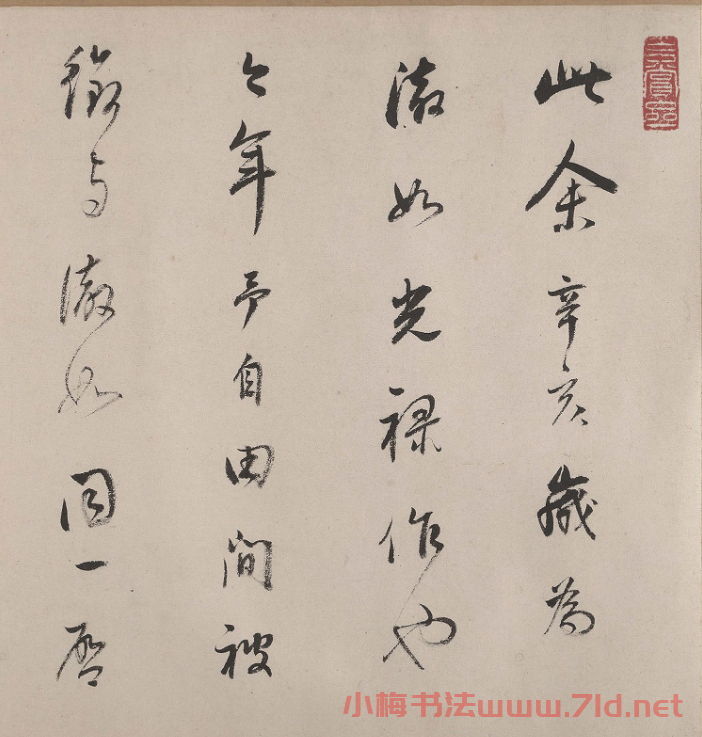 玄賞齋
此余辛亥歲為
澂如光祿作也
今年予自田間被
徵与澂如同一啓
小梅书法www.7ld.net